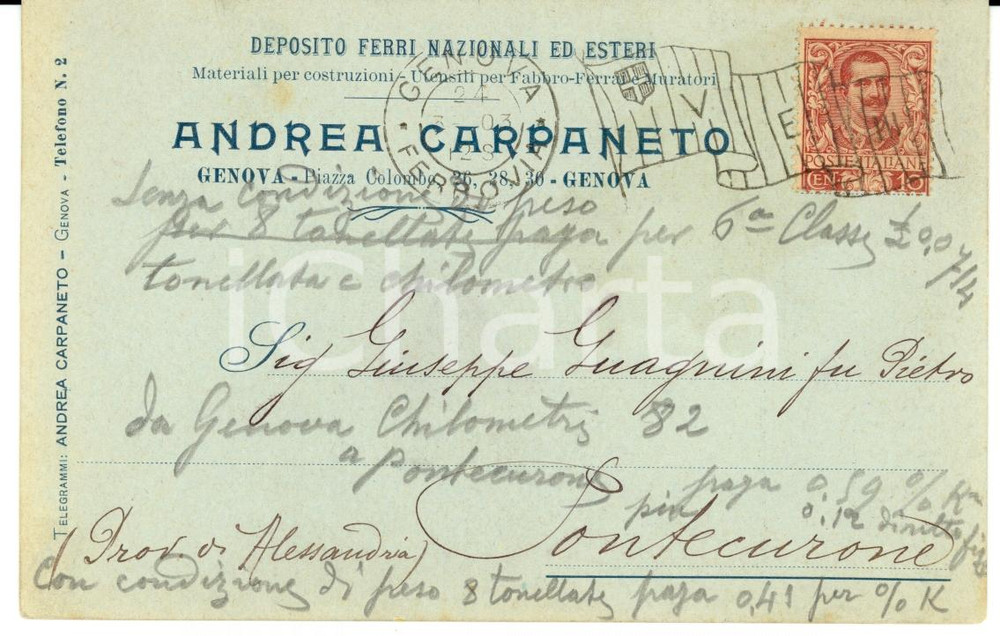 DEPOSITO FERRI NAZIONALI ED ESTERI
Materiali per costruzioni - Utensili per Fabbro-Ferrai e Muratori
ANDREA CARPANETO
GENOVA - Piazza Colombo, 26, 28, 30 - GENOVA
TELEGRAMMI: ANDREA CARPANETO - GENOVA - Telefono N. 2
GENOVA
24
FERROVIA
V E
POSTE ITALIANE
CEN. 10
Senza condizione di peso
per 8 tonellate paga per 6a Classe £ 0,0714
tonellata e chilometro
iCharta
Sig Giuseppe Guagnini fu Pietro
da Genova Chilometri 82
a Pontecurone
paga 0,59 % K
più 0,12 diritto fisso
Pontecurone
(Prov. di Alessandria)
Con condizione di peso 8 tonellate paga 0,41 per % K